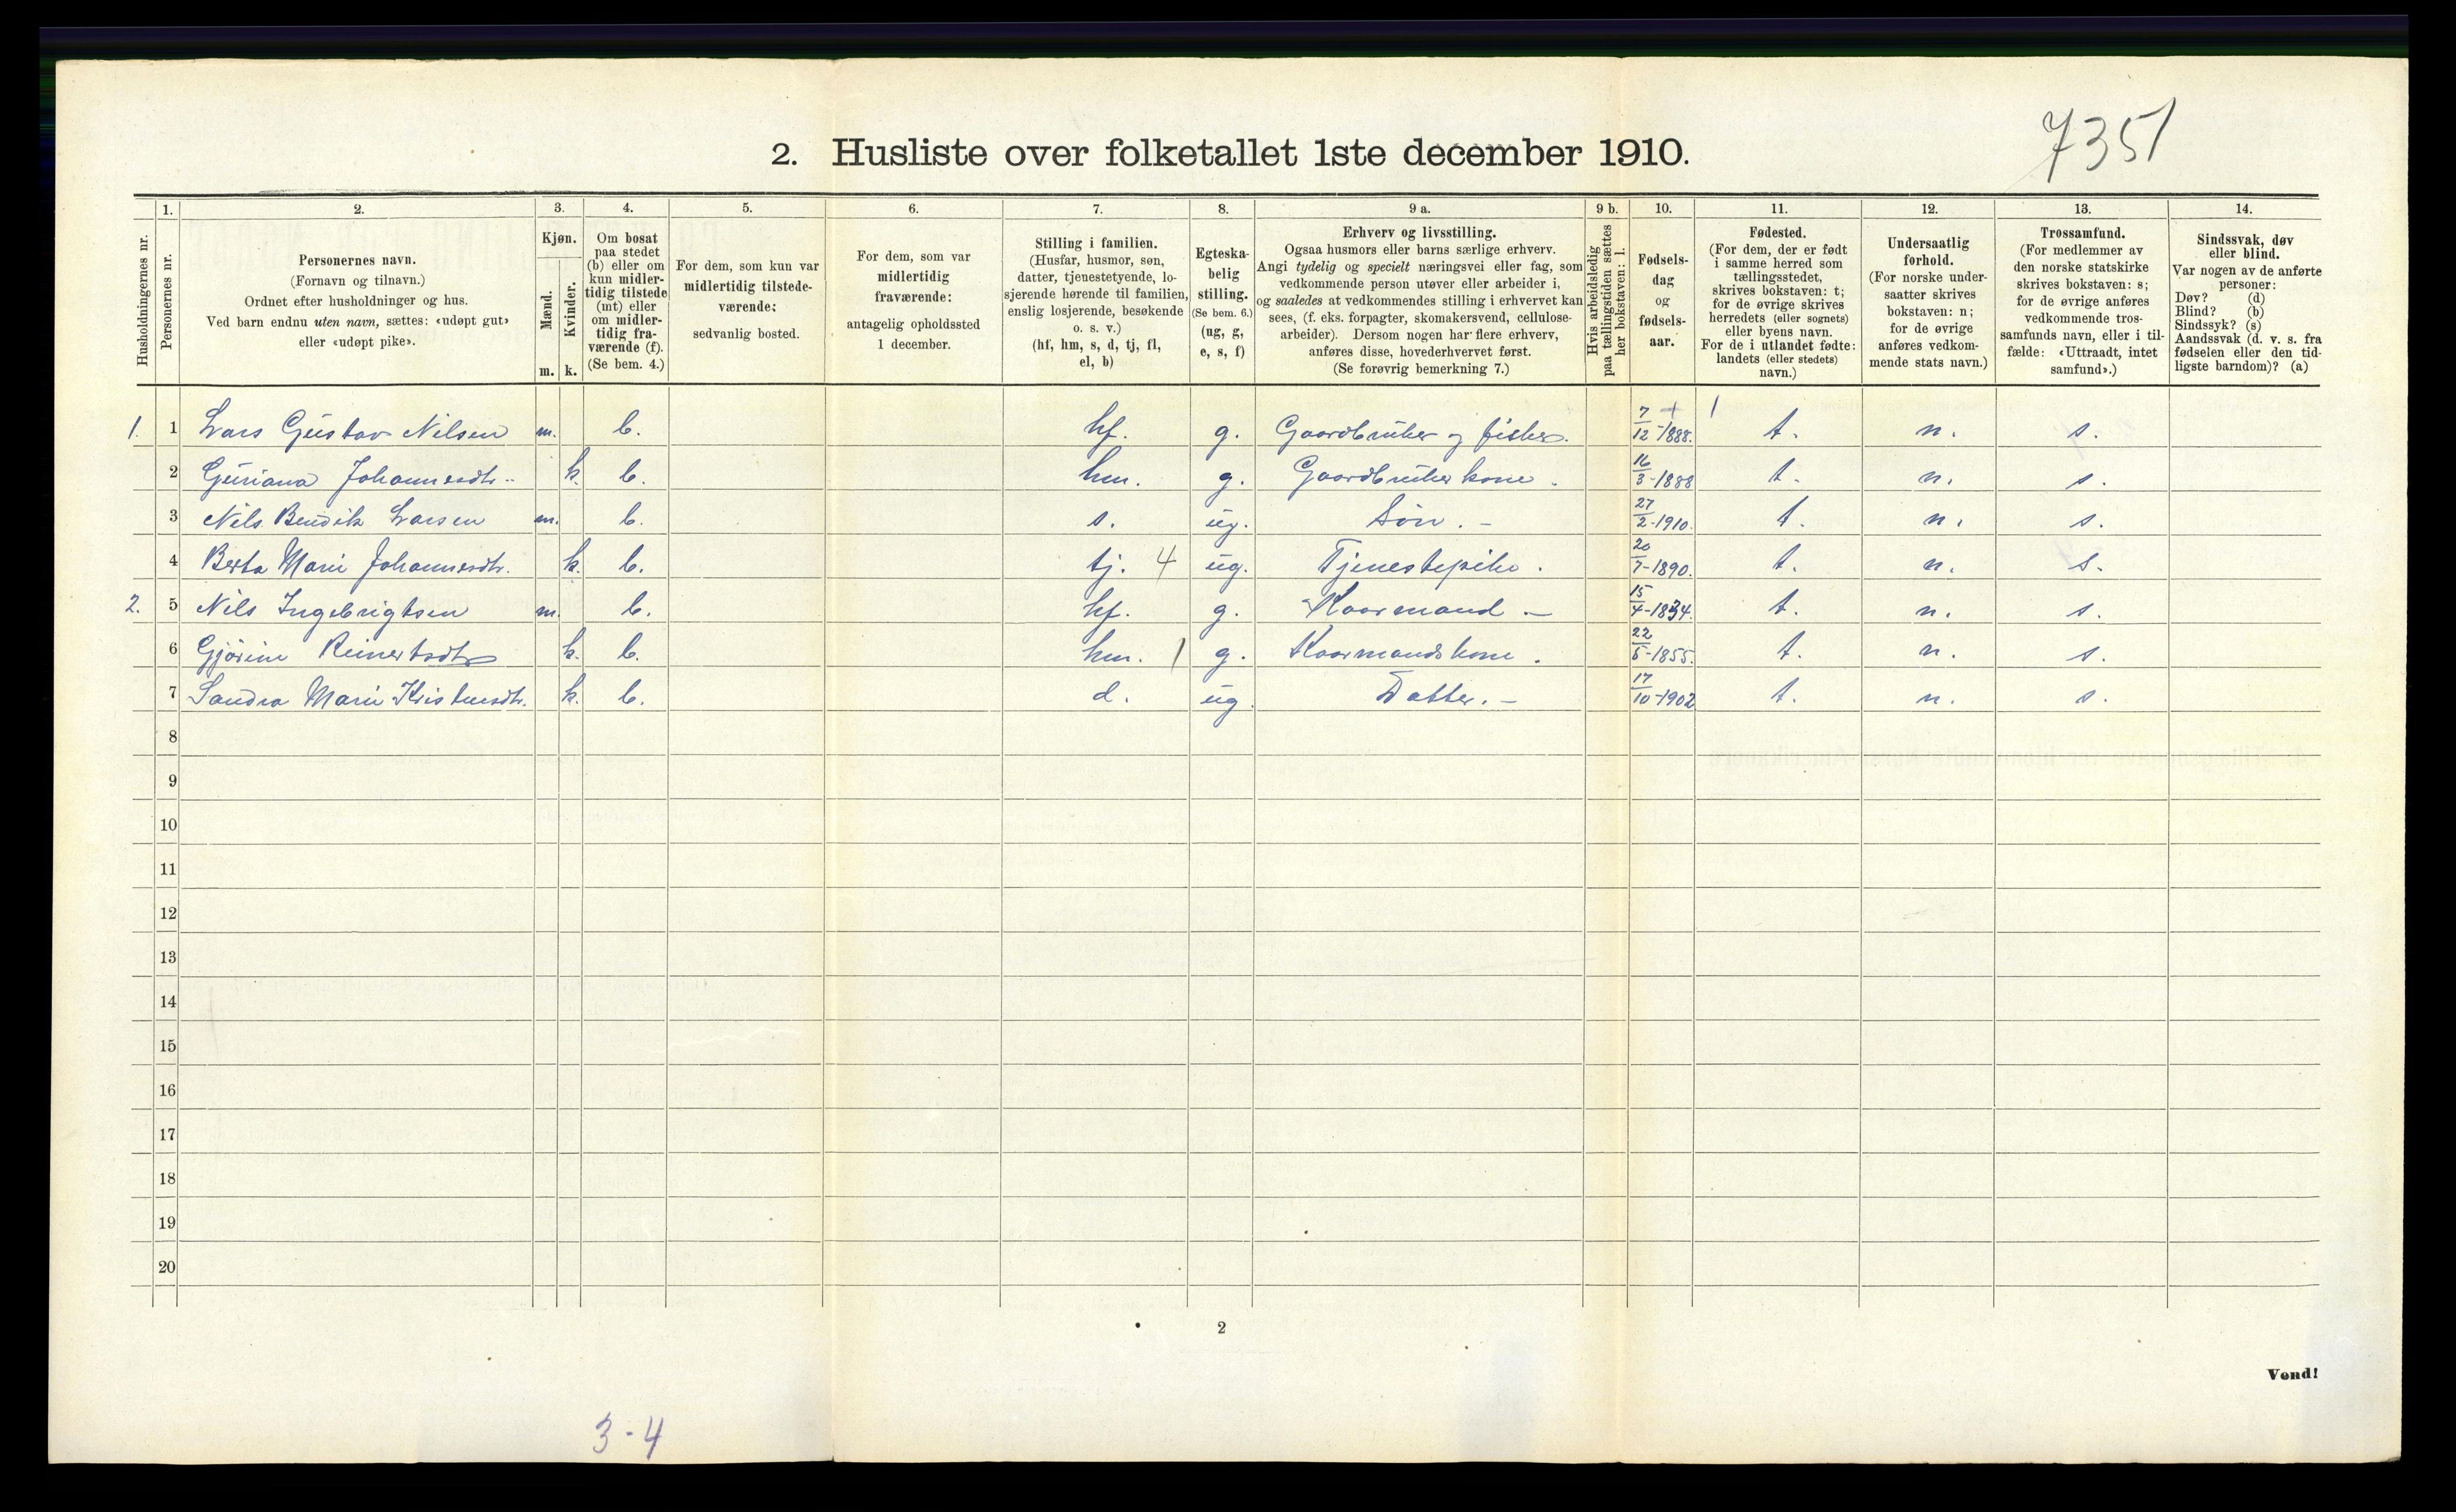 7351
2. Husliste over folketallet 1ste december 1910.
Husholdningernes nr.
1.
Personernes nr.
2.
Personernes navn.
(Fornavn og tilnavn.)
Ordnet efter husholdninger og hus.
Ved barn endnu uten navn, sættes: «udøpt gut»
eller «udøpt pike».
3.
Kjøn.
Mænd.
Kvinder.
m. k.
4.
Om bosat
paa stedet
(b) eller om
kun midler-
tidig tilstede
(mt) eller
om midler-
tidig fra-
værende (f).
(Se bem. 4.)
5.
For dem, som kun var
midlertidig tilstede-
værende:
sedvanlig bosted.
6.
For dem, som var
midlertidig
fraværende:
antagelig opholdssted
1 december.
7.
Stilling i familien.
(Husfar, husmor, søn,
datter, tjenestetyende, lo-
sjerende hørende til familien,
enslig losjerende, besøkende
o. s. v.)
(hf, hm, s, d, tj, fl,
el, b)
8.
Egteska-
belig
stilling.
(Se bem. 6.)
(ug, g,
e, s, f)
9 a.
Erhverv og livsstilling.
Ogsaa husmors eller barns særlige erhverv.
Angi tydelig og specielt næringsvei eller fag, som
vedkommende person utøver eller arbeider i,
og saaledes at vedkommendes stilling i erhvervet kan
sees, (f. eks. forpagter, skomakersvend, cellulose-
arbeider). Dersom nogen har flere erhverv,
anføres disse, hovederhvervet først.
(Se forøvrig bemerkning 7.)
9 b.
Hvis arbeidsledig
paa tællingstiden sættes
her bokstaven: l.
10.
Fødsels-
dag
og
fødsels-
aar.
11.
Fødested.
(For dem, der er født
i samme herred som
tællingsstedet,
skrives bokstaven: t;
for de øvrige skrives
herredets (eller sognets)
eller byens navn.
For de i utlandet fødte:
landets (eller stedets)
navn.)
12.
Undersaatlig
forhold.
(For norske under-
saatter skrives
bokstaven: n;
for de øvrige
anføres vedkom-
mende stats navn.)
13.
Trossamfund.
(For medlemmer av
den norske statskirke
skrives bokstaven: s;
for de øvrige anføres
vedkommende tros-
samfunds navn, eller i til-
fælde: «Uttraadt, intet
samfund».)
14.
Sindssvak, døv
eller blind.
Var nogen av de anførte
personer:
Døv? (d)
Blind? (b)
Sindssyk? (s)
Aandssvak (d. v. s. fra
fødselen eller den tid-
ligste barndom)? (a)
1. 1 Lars Gustav Nilsen m. b. hf. g. Gaardbruker og fisker. 7/12-1888. 1 t. n. s.
2 Guriana Johannesdtr. k. b. hm. g. Gaardbruker kone. 16/3-1888 t. n. s.
3 Nils Bendik Larsen m. b. s. ug. Søn. - 27/2-1910. t. n. s.
4 Berta Marie Johannesdtr. k. b. tj. 4 ug. Tjenestepike. 20/7-1890. t. n. s.
2. 5 Nils Ingebrigtsen m. b. hf. g. Kaarmand - 15/4-1834. t. n. s.
6 Gjørine Reinertsdtr k. b. hm. 1 g. Kaarmandskone. 22/5-1855. t. n. s.
7 Sandra Marie Kristensdtr. k. b. d. ug. Datter. - 17/10-1902 t. n. s.
8
9
10
11
12
13
14
15
16
17
18
19
20
2
Vend!
3-4